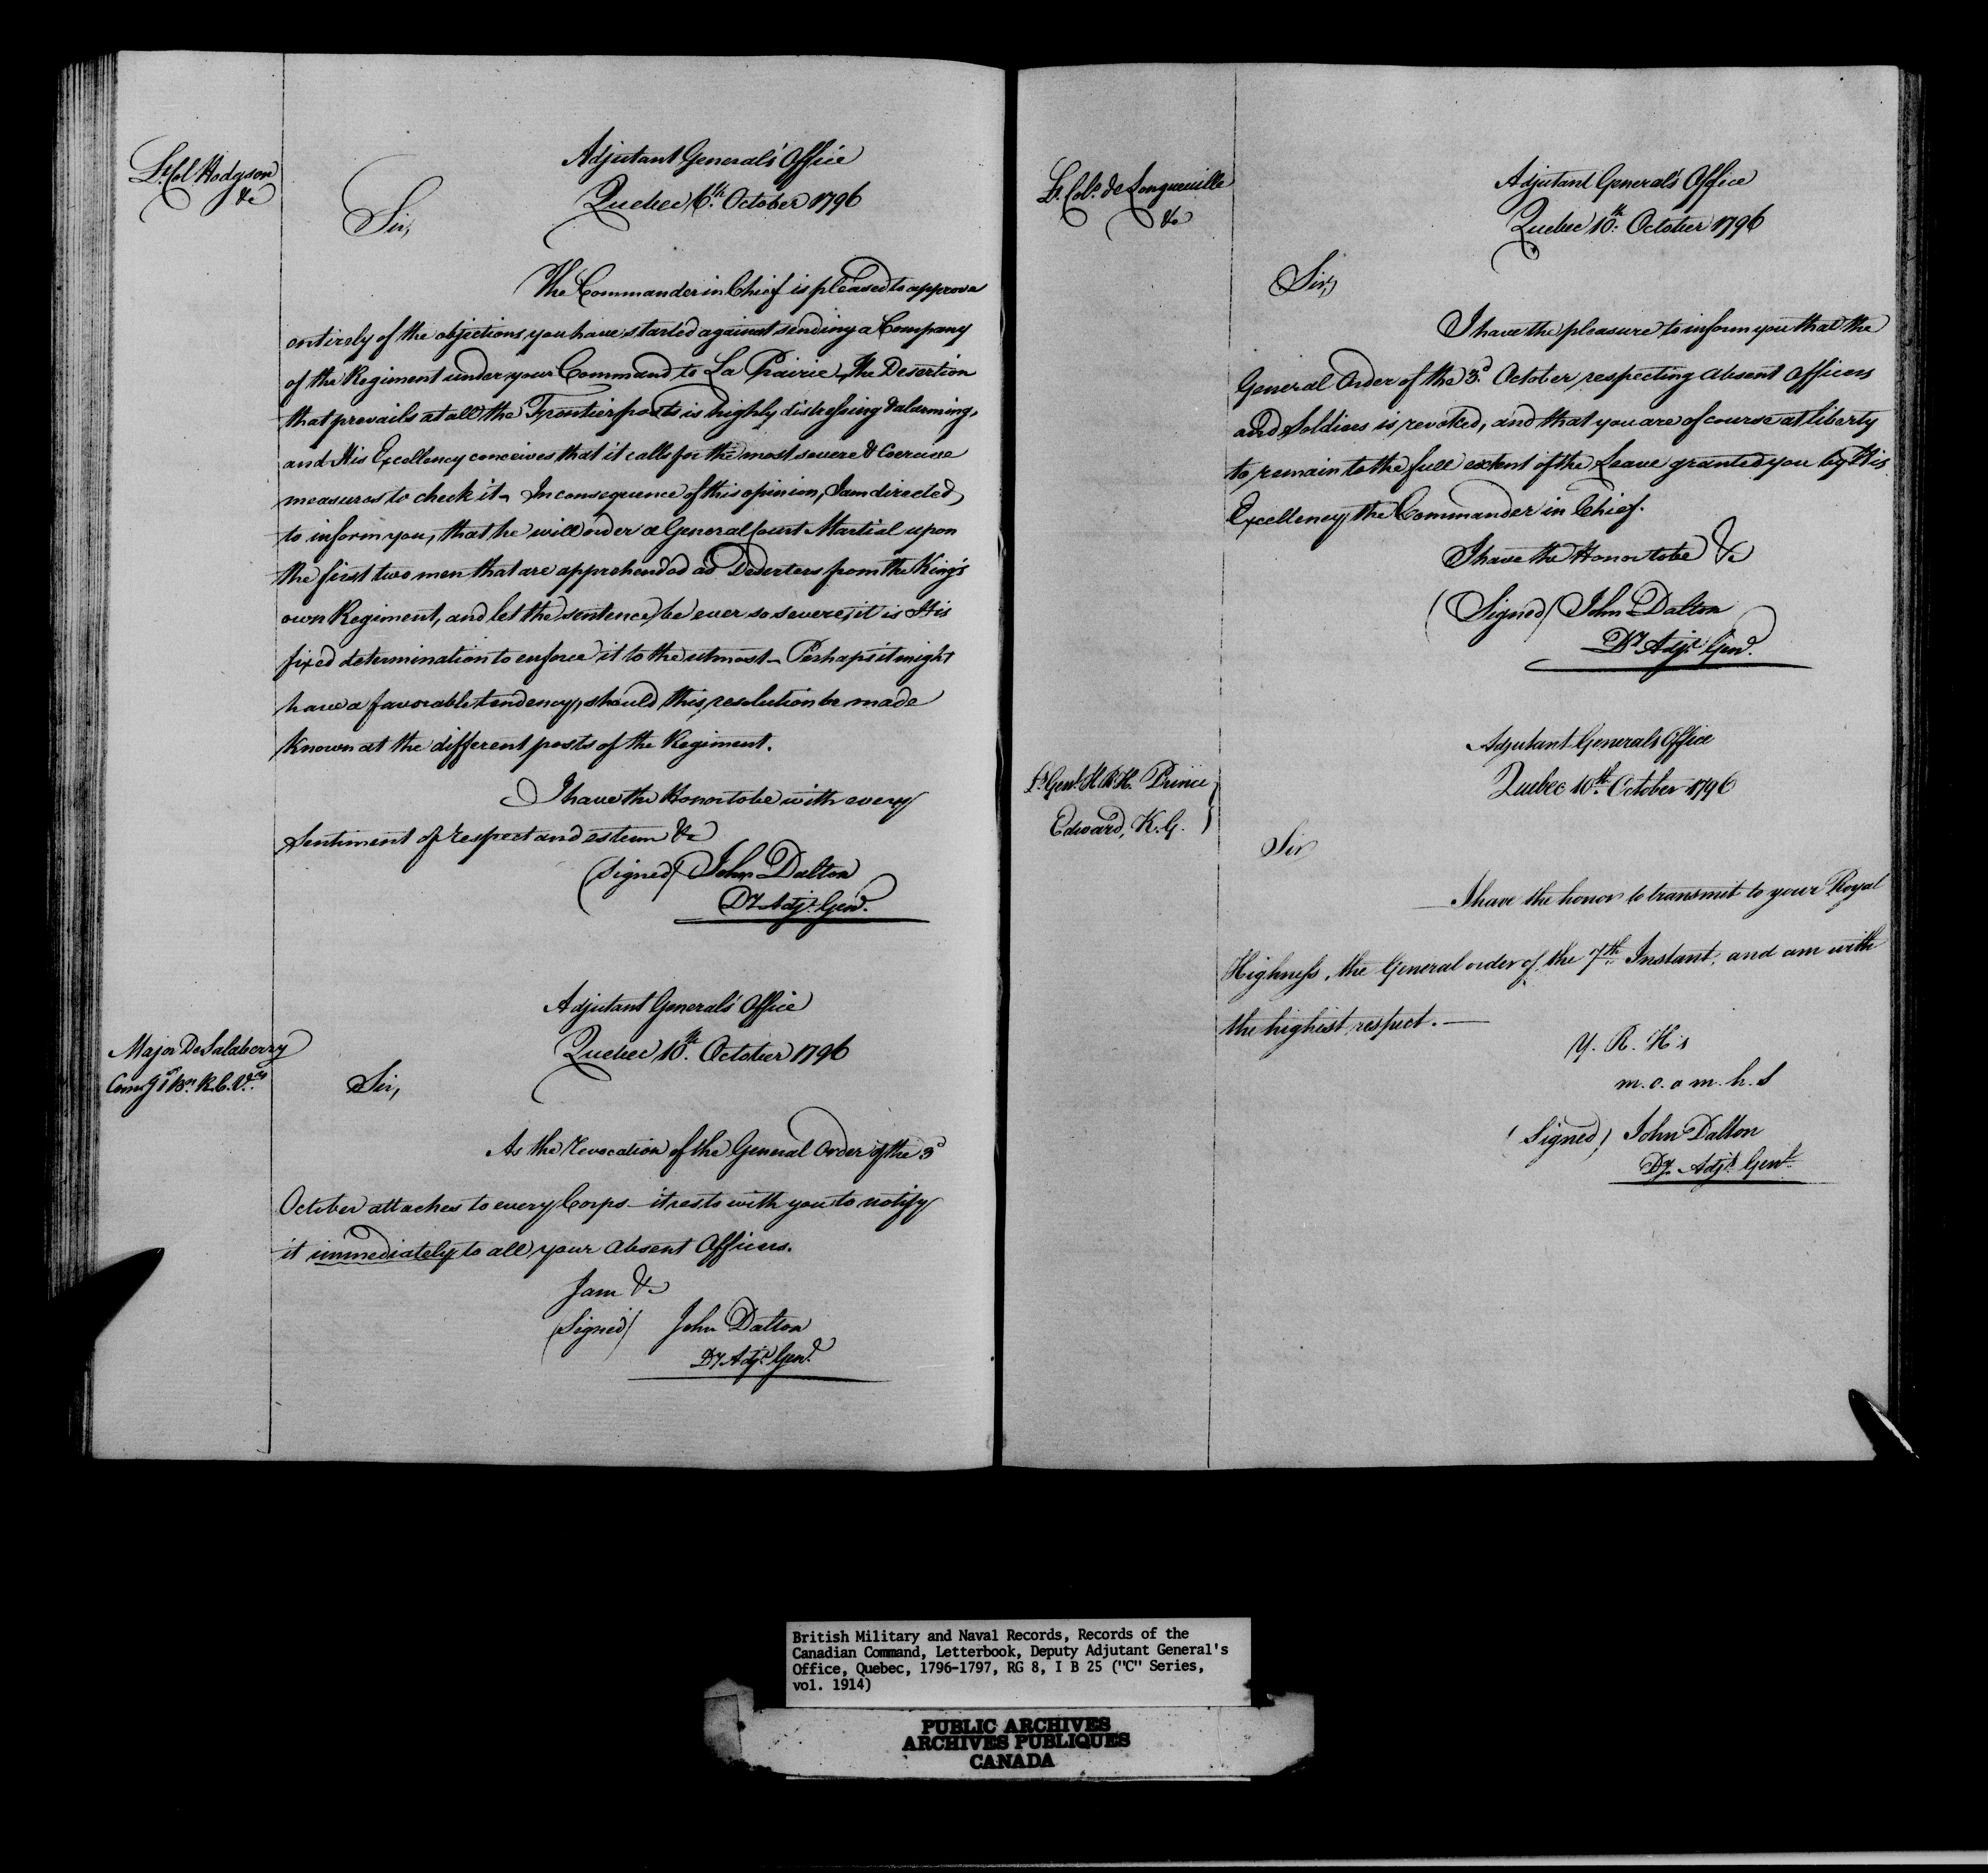 Lt. Col. Hodgson
&c
Adjutant General's Office
Quebec 6th. October 1796
Sir,
The Commander in Chief is pleased to approve
entirely of the objections you have started against sending a Company
of the Regiment under your Command to La Prairie, The Desertion
that prevails at all the Frontier posts is highly distressing & alarming,
and His Excellency conceives that it calls for the most severe & Coercive
measures to check it - In consequence of this opinion, I am directed
to inform you, that he will order a General Court Martial upon
the first two men that are apprehended as Deserters from the King's
own Regiment, and let the sentence be ever so severe, it is His
fixed determination to enforce it to the utmost - Perhaps it might
have a favorable tendency, should this resolution be made
known at the different posts of the Regiment.
I have the Honor to be with every
Sentiment of respect and esteem &c
(Signed) John Dalton
Dy. Adjt. Genl.
Adjutant General's Office
Major De Salaberry
Quebec 10th. October 1796
Comg 1st Bn. R.C.V.
Sir,
As the Revocation of the General Order of the 3d
October attaches to every Corps - it rests with you to notify
it immediately to all your absent Officers.
I am &c
(Signed) John Dalton
Dy Adjt. Genl.
Lt. Col. de Longueuille
&c
Adjutant General's Office
Quebec 10th. October 1796
Sir,
I have the pleasure to inform you that the
General Order of the 3d. October respecting absent Officers
and Soldiers is revoked, and that you are of course at liberty
to remain to the full extent of the Leave granted you by His
Excellency the Commander in Chief.
I have the Honor to be &c
(Signed) John Dalton
Dy Adjt. Genl.
Adjutant Generals Office
Lt. Genl. H.R.H. Prince
Edward, K.G.
Quebec 10th. October 1796
Sir
I have the honor to transmit to your Royal
Highness, the General order of the 7th. Instant, and am with
the highest respect. —
Y. R. H's
m. o. a m. h. S
(Signed) John Dalton
Dy. Adjt. Genl.
British Military and Naval Records, Records of the
Canadian Command, Letterbook, Deputy Adjutant General's
Office, Quebec, 1796-1797, RG 8, I B 25 ("C" Series,
vol. 1914)
PUBLIC ARCHIVES
ARCHIVES PUBLIQUES
CANADA